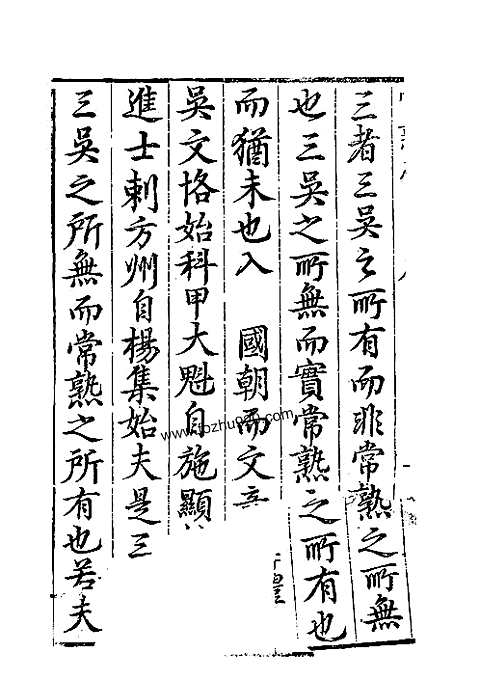 三者三吳之所有而非常熟之所無
也三吳之所無而實常熟之所有也
而猶未也入　國朝而文
吳文恪始科甲大魁自施顯
進士剌方州自楊集始夫是三
三吳之所無而常熟之所有也若夫